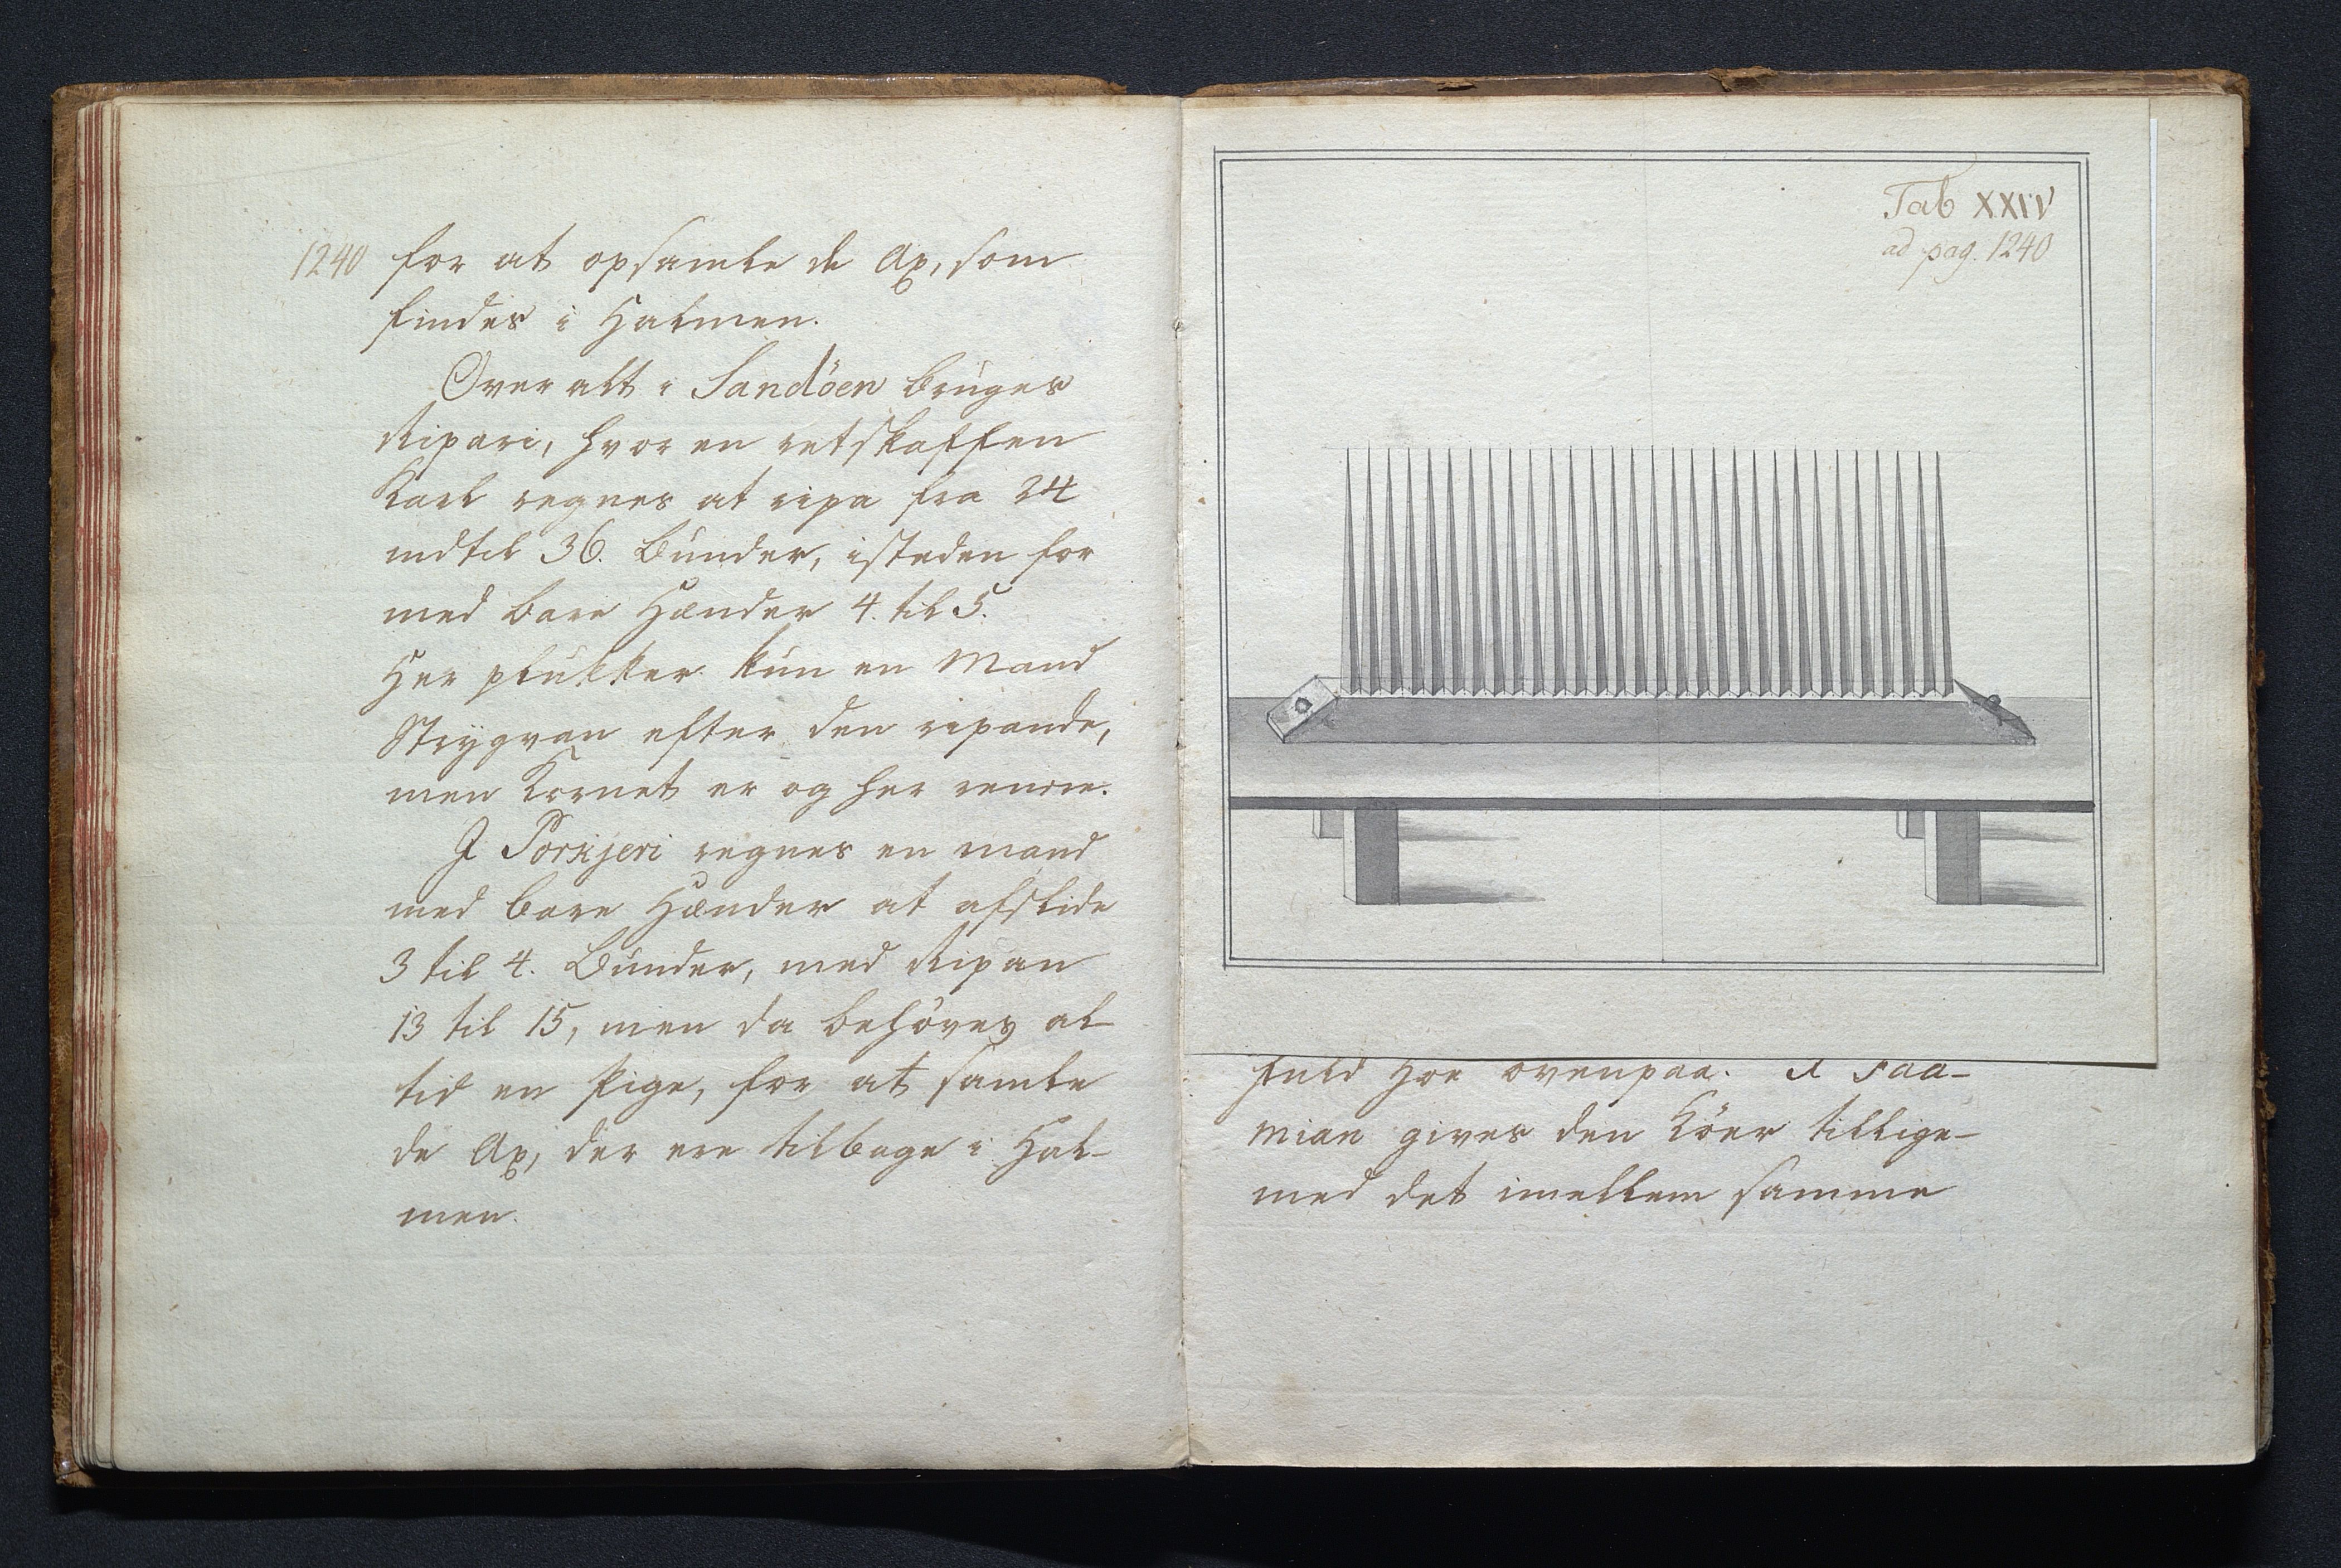 1240 for at opsamle de Ax, som
findes i Halmen.
Over alt i Sandöen bruges
Ripari, hvor en retskaffen
Karl regnes at ripa fra 24
indtil 36. Bunder, isteden for
med bare Hænder 4. til 5.
Her plukker kun en Mand
Strygvan efter den ripande,
men Kornet er og her renere.
J Porkjeri regnes en mand
med bare Hænder at afslide
3 til 4. Bunder, med Ripan
13 til 15, men da behöves al-
tid en Pige, for at samle
de Ax, der ere tilbage i Hal-
men.
Tab XXIV
ad pag. 1240
fuld Hoe ovenpaa. I saa-
mian gives den Köer tillige-
med det imellem samme